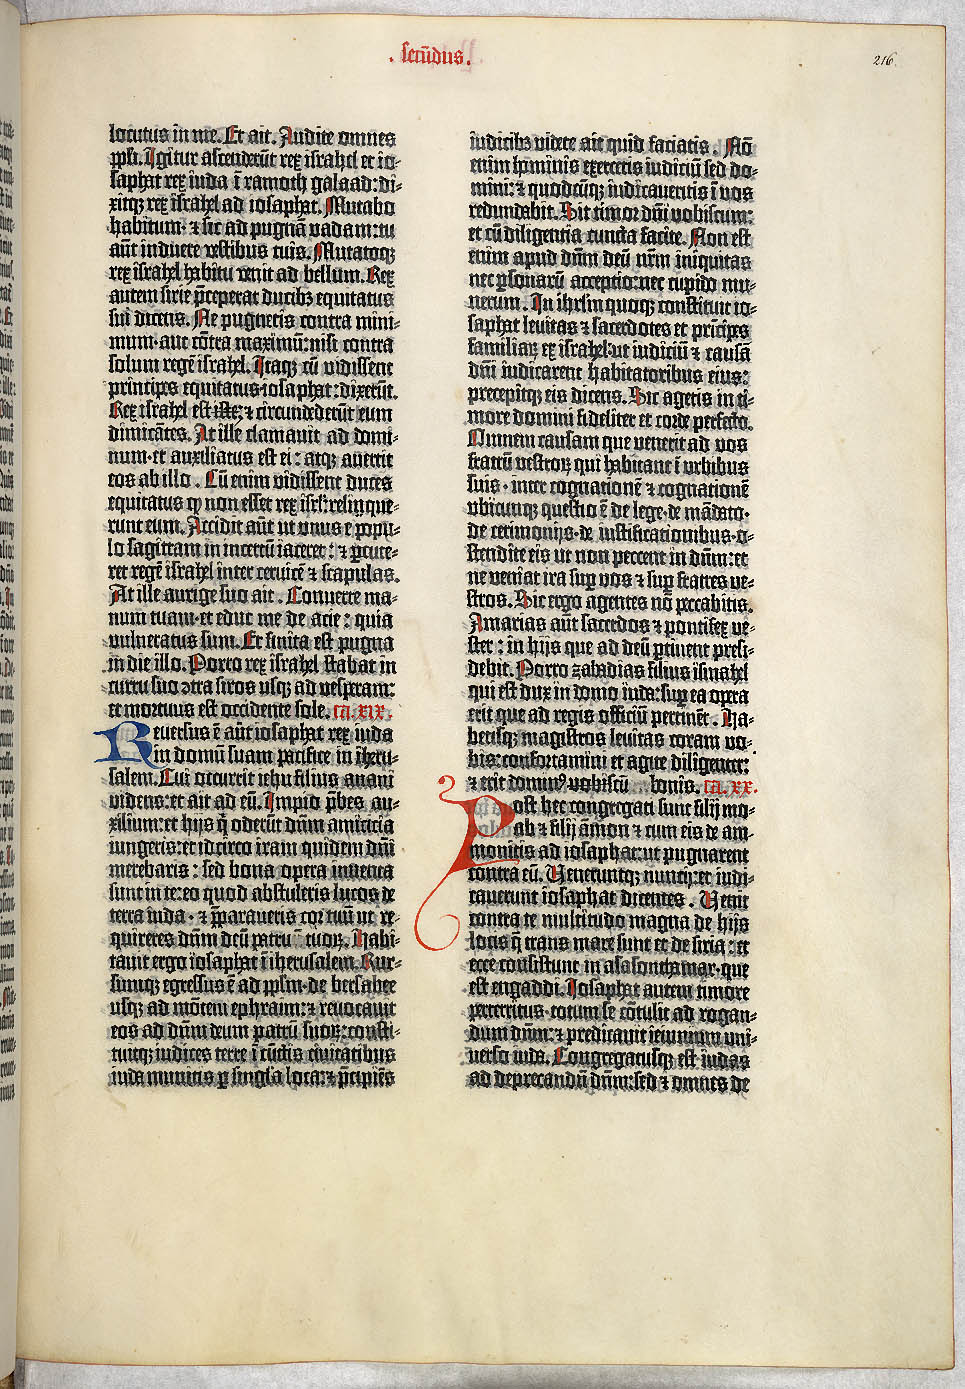 . secūdus.
216
locutus in me. Et ait. Audite omnes
ppli. Igitur ascenderūt rex israhel et io-
saphat rex iuda ī ramoth galaad: di-
xitqꝫ rex israhel ad iosaphat. Mutabo
habitum· ⁊ sic ad pugnā vadam: tu
aūt induere vestibus tuis. Mutatoqꝫ
rex israhel habitu venit ad bellum. Rex
autem sirie p̄ceperat ducibꝫ equitatus
sui dicens. Ne pugnetis contra mini-
mum· aut cōtra maximū: nisi contra
solum regē israhel. Itaqꝫ cū vidissent
principes equitatus iosaphat: dixerūt.
Rex israhel est iste; ⁊ circundederūt eum
dimicātes. At ille clamauit ad domi-
num· et auxiliatus est ei: atqꝫ auertit
eos ab illo. Cū enim vidissent duces
equitatus ꝙ non esset rex isrl: relinque-
runt eum. Accidit aūt ut unus e popu-
lo sagittam in incertū iaceret: ⁊ p̄cute-
ret regē israhel inter ceruicē ⁊ scapulas.
At ille aurige suo ait. Conuerte ma-
num tuam· et educ me de acie: quia
vulneratus sum. Et finita est pugna
in die illo. Porro rex israhel stabat in
curru suo ↄtra siros usqꝫ ad vesperam:
et mortuus est occidente sole. ca. xix.
Reuersus ē aūt iosaphat rex iuda
in domū suam pacifice in iheru-
salem. Cui occurrit iehu filius anani
videns: et ait ad eū. Impio p̄bes au-
xilium: et hijs q̄ oderūt dn̄m amicicia
iungeris: et idcirco iram quidem dn̄i
merebaris: sed bona opera inuenta
sunt in te: eo quod abstuleris lucos de
terra iuda· ⁊ p̄paraueris cor tuū ut re-
quireres dn̄m deū patrū tuoꝝ. Habi-
tauit ergo iosaphat ī iherusalem. Rur-
sumqꝫ egressus ē ad pplm· de bersabee
usqꝫ ad mōtem ephraim: ⁊ reuocauit
eos ad dn̄m deum patrū suoꝝ: consti-
tuitqꝫ iudices terre ī cūctis ciuitatibus
iuda munitis ꝑ singla loca: ⁊ p̄cipiēs
iudicibꝫ videte ait quid faciatis. Nō
enim hominis exercetis iudiciū sed do-
mini: ⁊ quodcūqꝫ iudicaueritis ī vos
redundabit. Sit timor dn̄i vobiscum:
et cū diligentia cuncta facite. Non est
enim apud dn̄m deū nr̄m iniquitas
nec ꝑsonarū acceptio: nec cupido mu-
nerum. In ihrlm quoqꝫ constituit io-
saphat leuitas ⁊ sacerdotes et prīcipes
familiaꝝ ex israhel: ut iudiciū ⁊ causā
dn̄i iudicarent habitatoribus eius:
precepitqꝫ eis dicens. Sic agetis in ti-
more domini fideliter et corde perfecto.
Omnem causam que venerit ad vos
fratrū vestroꝝ qui habitant ī urbibus
suis· inter cognationē ⁊ cognationē
ubicunqꝫ questio ē de lege· de mādato·
de cerimonijs· de iustificationibus· o-
stendite eis ut non peccent in dn̄m: et
ne veniat ira suꝑ vos ⁊ suꝑ fratres ve-
stros. Sic ergo agentes nō peccabitis.
Amarias aūt sacerdos ⁊ pontifex ve-
ster: in hijs que ad deū ꝑtinent presi-
debit. Porro zabadias filius ismahel
qui est dux in domo iuda: suꝑ ea opera
erit que ad regis officiū pertinēt. Ha-
betisqꝫ magistros leuitas coram vo-
bis: confortamini et agite diligenter:
⁊ erit dominꝰ vobiscū bonis. ca. xx.
Post hec congregati sunt filij mo-
ab ⁊ filij amon ⁊ cum eis de am-
monitis ad iosaphat: ut pugnarent
contra eū. Veneruntqꝫ nuncij: et indi-
cauerunt iosaphat dicentes. Venit
contra te multitudo magna de hijs
locis q̄ trans mare sunt et de siria: et
ecce consistunt in asasonthamar· que
est engaddi. Iosaphat autem timore
perterritus· totum se cōtulit ad rogan-
dum dn̄m: ⁊ predicauit ieiunium uni-
uerso iuda. Congregatusqꝫ est iudas
ad deprecandū dn̄m: sed ⁊ omnes de